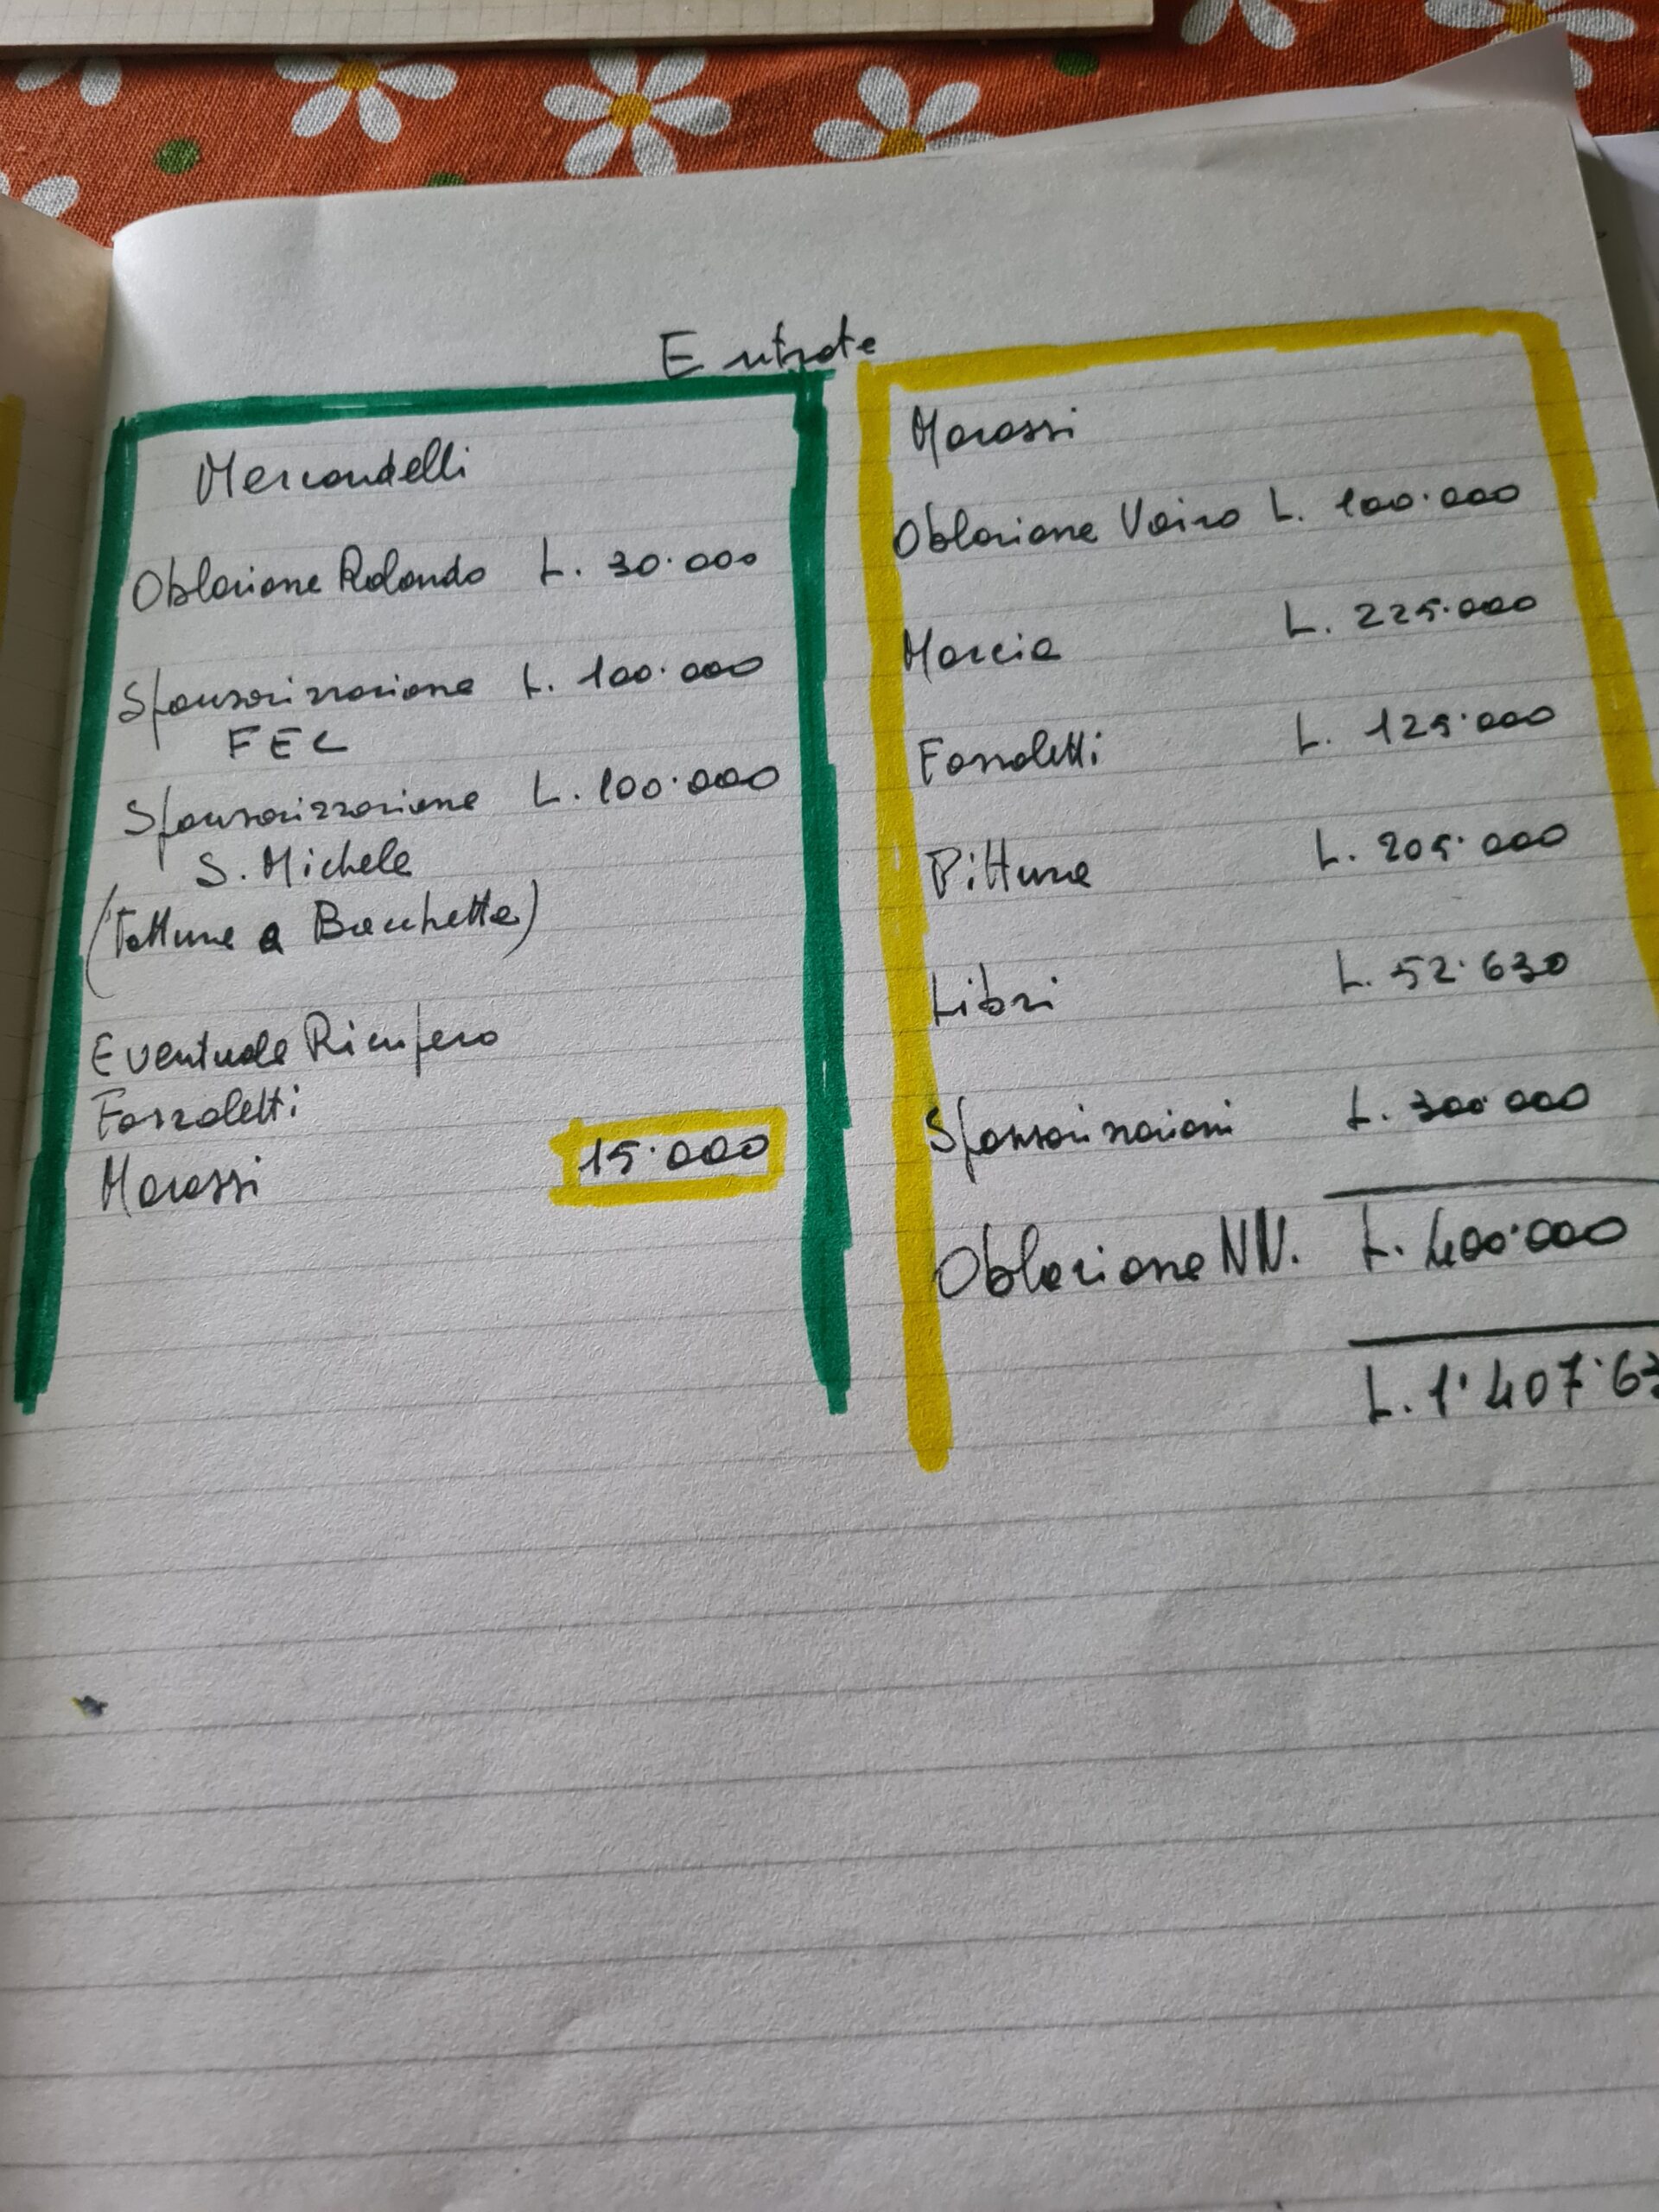 Entrate
Mercandelli
Oblazione Rolando L. 30.000
Sponsorizzazione L. 100.000
FEL
Sponsorizzazione L. 100.000
S. Michele
(Fatture a Bacchetta)
Eventuale Ricupero
Fazzoletti
Marassi 15.000
Marassi
Oblazione Vairo L. 100.000
Marcia L. 225.000
Fazzoletti L. 125.000
Pitture L. 205.000
Libri L. 52.630
Sponsorizzazioni L. 300.000
Oblazione NN. L. 400.000
L. 1.407.63